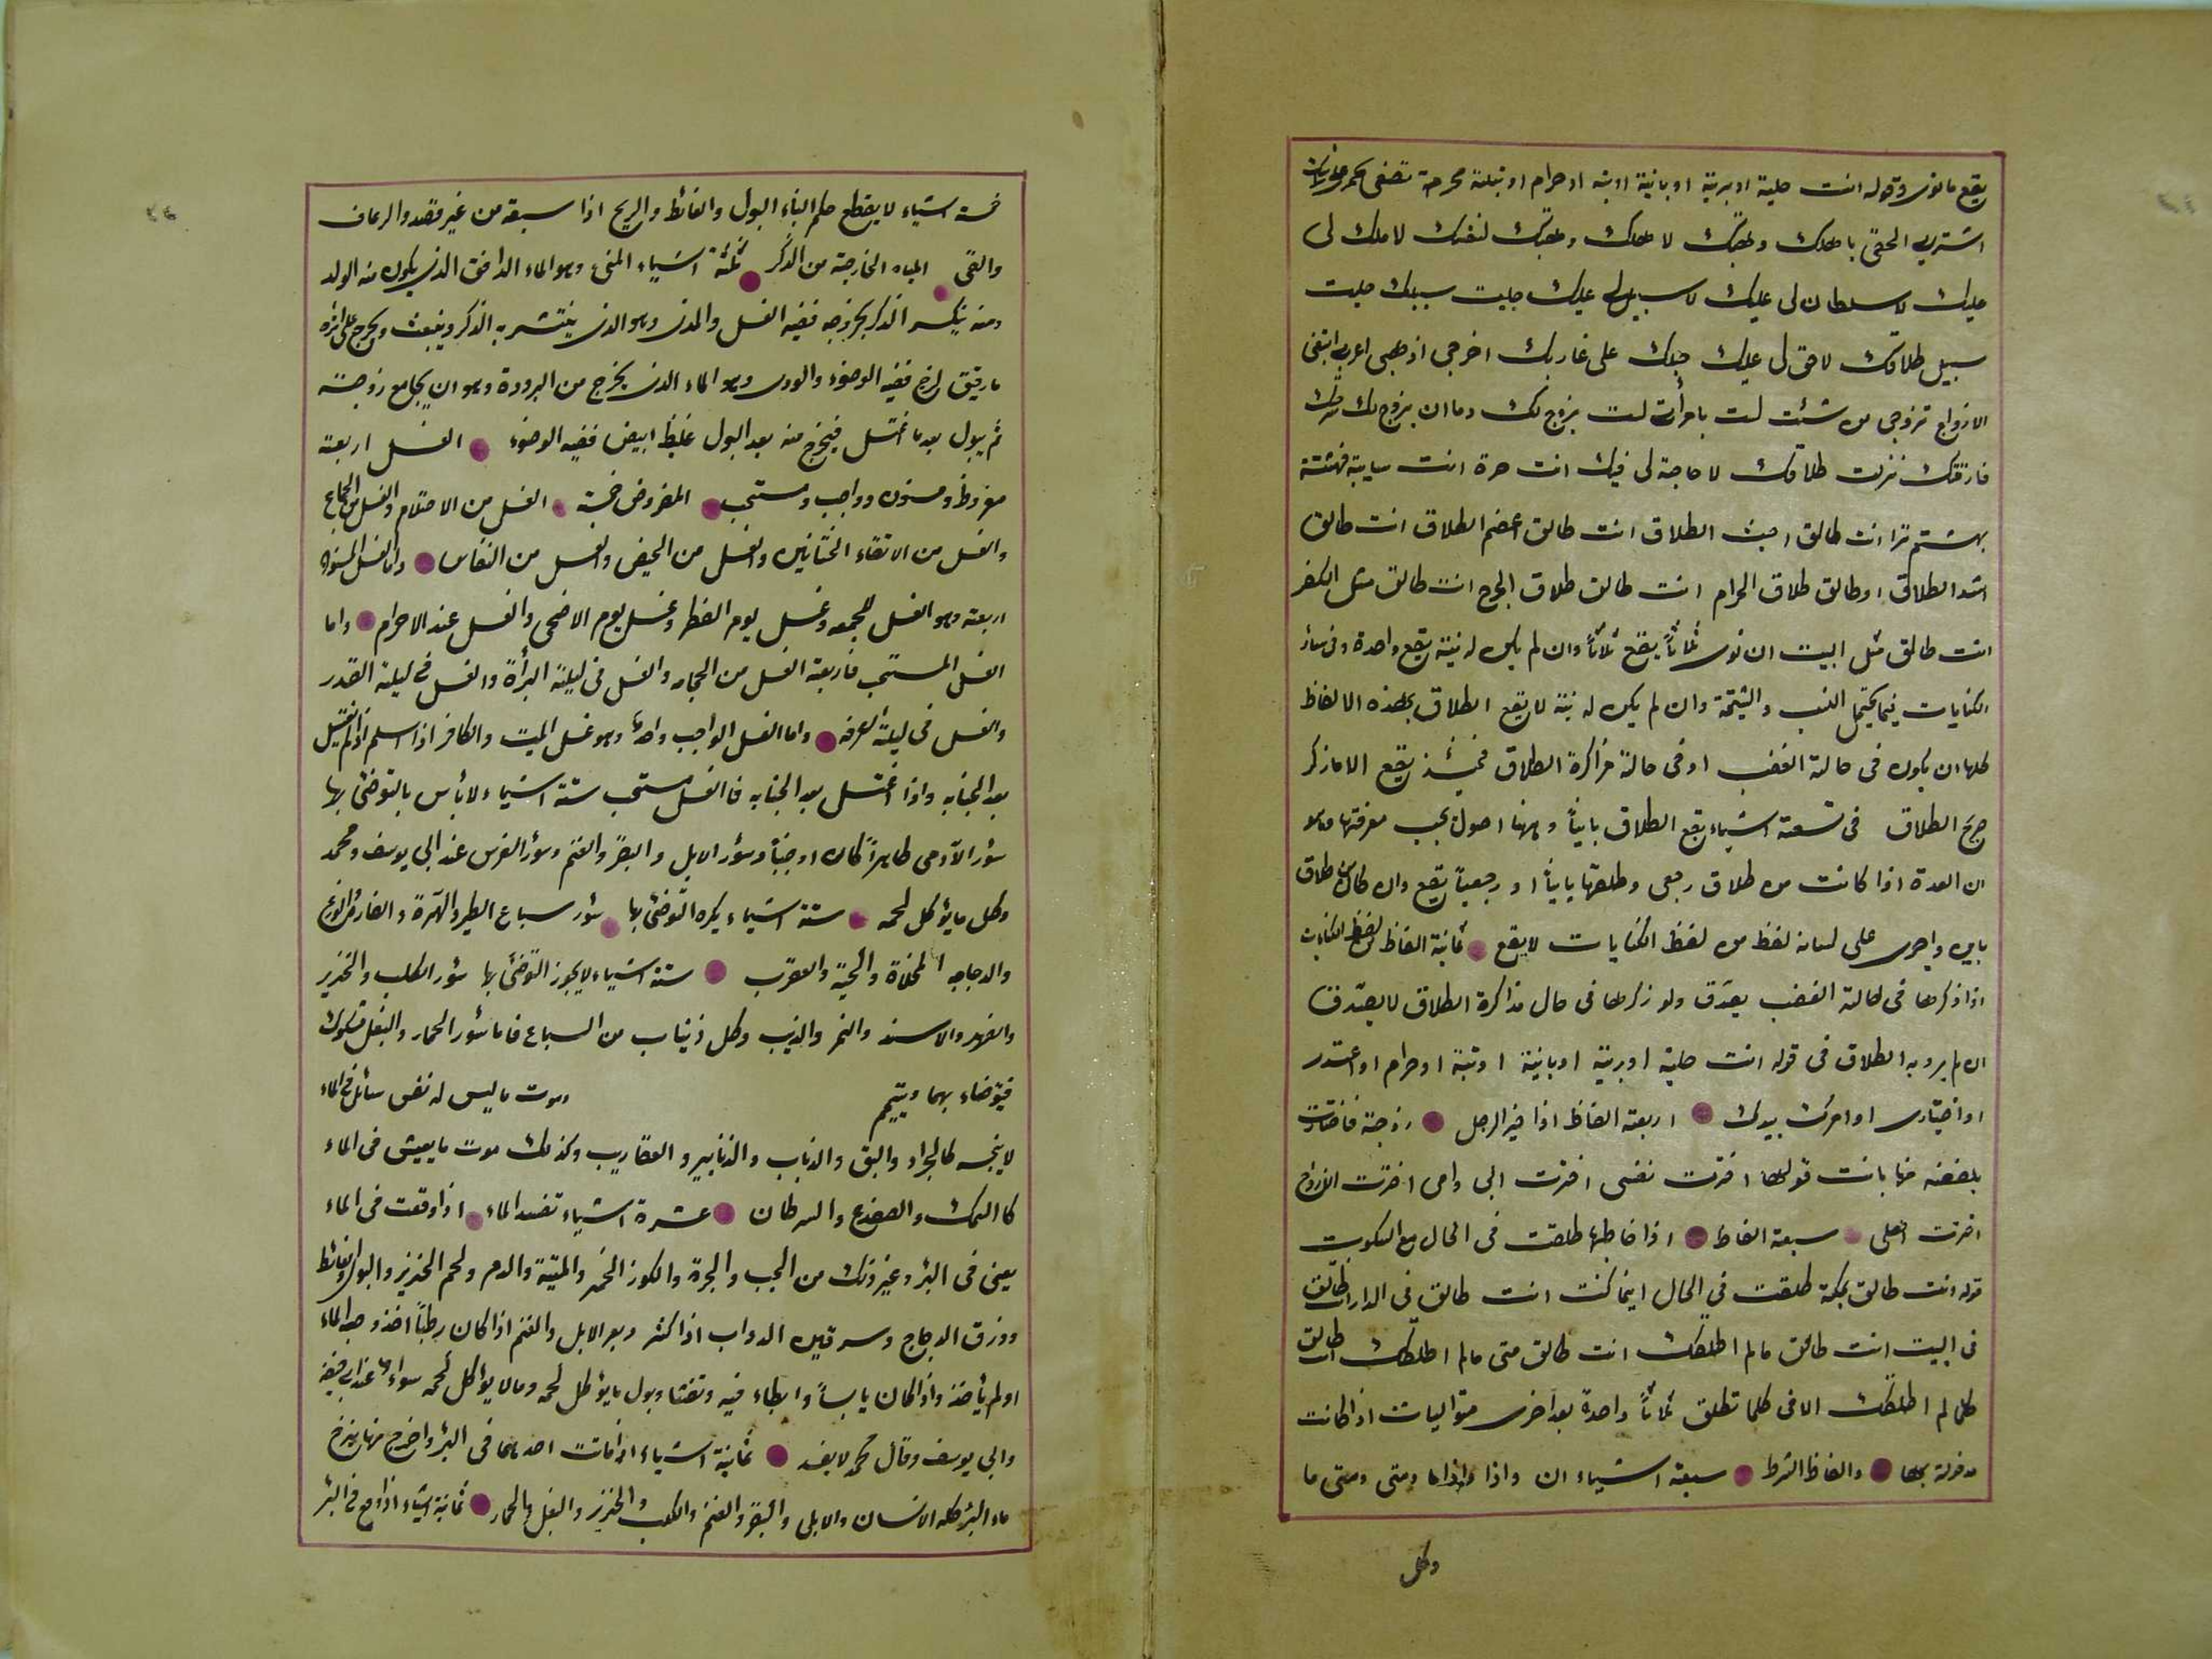 يقع مانوى وقوله انت خلية او برية او باينة او بتة او حرام او
اشتري الحقى باهلك وهبتك لاهلك وهبتك لنفسك لا ملك لى
عليك لا سلطان لى عليك لا سبيل لى عليك خليت سبيلك خليت
سبيل طلاقك لا حق لى عليك حبلك على غاربك اخرجى اذهبى اعربى ابتغى
الازواج تزوجى من شئت لست بامرأت لست بزوج لك وما ان بزوج لك
فارقتك نزلت طلاقك لا حاجة لى فيك انت حرة انت سايبة
بهشتم ترا انت طالق اخبث الطلاق انت طالق اعضم الطلاق انت طالق
اشد الطلاق او طالق طلاق الحرام انت طالق طلاق الحرج انت طالق مثل الكفر
انت طالق مثل البيت ان نوى ثلاثاً يقع ثلاثاً وان لم يكن له نية يقع واحدة وفى سائر
الكنايات فيما يحتمل السب والشتمة وان لم يكن له نية لا يقع الطلاق بهذه الالفاظ
كلها ان يكون فى حالة الغضب او فى حالة مذاكرة الطلاق فحينئذ يقع الا ما ذكر
صريح الطلاق فى تسعة اشياء يقع الطلاق بايناً وههنا اصول يجب معرفتها
ان العدة اذا كانت من طلاق رجعى وطلقها بايناً او رجعياً يقع وان كان من طلاق
باين واجرى على لسانه لفظ من لفظ الكنايات لا يقع ثمانية الفاظ من لفظ الكنايات
اذا ذكرها فى حالة الغضب يصدق ولو ذكرها فى حال مذاكرة الطلاق لا يصدق
ان لم يرد به الطلاق فى قوله انت خلية او برية او باينة او بتة او حرام او اعتدى
او اختارى او امرك بيدك اربعة الفاظ اذا خير الرجل زوجته فاختارت
بلفظه منها بانت قولها اخترت نفسى اخترت ابى وامى اخترت الازواج
اخترت اهلى سبعة الفاظ اذا خاطبها طلقت فى الحال مع السكوت
قوله انت طالق بمكة طلقت فى الحال اينما كنت انت طالق فى الدار انت طالق
فى البيت انت طالق مالم اطلقك انت طالق متى مالم اطلقك انت طالق
كلما لم اطلقك الا فى كلما تطلق ثلاثاً واحدة بعد اخرى متواليات اذا كانت
مدخولة بها والفاظ الشرط سبعة اشياء ان واذا واذاما ومتى ومتى ما
وكل
خمسة اشياء لا يقطع حكم البناء البول والغائط والريح اذا سبقه من غير قصد والرعاف
والقى المياه الخارجة من الذكر ثلثة اشياء المنى وهو الماء الدافق الذى يكون منه الولد
ومنه ينكسر الذكر بخروجه ففيه الغسل والمذى وهو الذى ينتشر به الذكر وينبعث ويخرج على اثره
ما رقيق لزج ففيه الوضوء والودى وهو الماء الذى يخرج من البرودة وهو ان يجامع زوجته
ثم يبول بعد ما اغتسل فيخرج منه بعد البول غليظ ابيض ففيه الوضوء الغسل اربعة
مفروظ ومسنون وواجب ومستحب المفروض خمسة الغسل من الاحتلام والغسل من الجماع
والغسل من الاتقاء الختانين والغسل من الحيض والغسل من النفاس واما الغسل المسنون
اربعة وهو الغسل للجمعه وغسل يوم الفطر وغسل يوم الاضحى والغسل عند الاحرام واما
الغسل المستحب فاربعة الغسل من الحجامه والغسل فى ليلة البرأة والغسل فى ليلة القدر
والغسل فى ليلة العرفه واما الغسل الواجب واحد وهو غسل الميت والكافر اذا اسلم اذا لم يغتسل
بعد الجنابه واذا اغتسل بعد الجنابه فالغسل مستحب ستة اشياء لا بأس بالتوضئ بها
سؤر الآدمى طاهراً كان او جنباً وسؤر الابل والبقر والغنم وسؤر الفرس عند ابى يوسف ومحمد
وكل ما يؤكل لحمه ستة اشياء يكره التوضئ بها سؤر سباع الطير والهرة والفارة والوزغ
والدجاجه المخلاة والحية والعقرب ستة اشياء لا يجوز التوضئ بها سؤر الكلب والخنزير
والفهد والاسد والنمر والذيب وكل ذيناب من السباع فاما سؤر الحمار والبغل مشكوك
فيتوضاء بهما ويتيمم وموت ما ليس له نفس سائل فى الماء
لا ينجسه كالجراد والبق والذباب والذنابير والعقاريب وكذلك موت ما يعيش فى الماء
كا السمك والضفدع والسرطان عشرة اشياء تفسد الماء اذا وقعت فى الماء
يعنى فى البئر وغير ذلك من الجب والجرة والكوز الخمر والميتة والدم ولحم الخنزير والبول والغائط
وذرق الدجاج وسرقين الدواب اذا كثر وبعر الابل والغنم اذا كان رطباً اخذ وجه الماء
او لم يأخذ واذا كان يابساً وابطاء فيه وتفتا وبول ما يؤكل لحمه وما لا يؤكل لحمه سواء
وابى يوسف وقال محمد لا يفسد ثمانية اشياء اذا ماتت احدهما فى البئر واخرج منها ينزح
ماء البئر كله الانسان والابل والبقر والغنم والكلب والخنزير والبغل والحمار ثمانية اشياء اذا وقع فى البئر